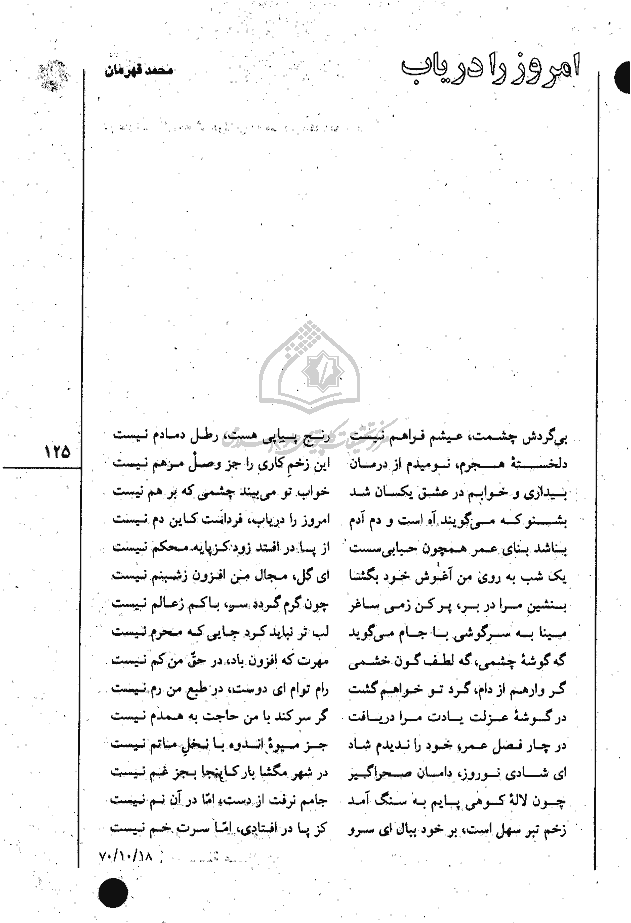 امروز را دریاب
محمد قهرمان
بی‌گردش چشمت، عیشم فراهم نیست رنج پیاپی هست، رطل دمادم نیست
دلخستهٔ هجرم، نومیدم از درمان این زخم کاری را جز وصل مرهم نیست
بیداری و خوابم در عشق یکسان شد خواب تو می‌بیند چشمی که بر هم نیست
بشنو که می‌گویند آه است و دم آدم امروز را دریاب، فردات کاین دم نیست
باشد بنای عمر همچون حبابی‌سست از پا در افتد زود کز پایه محکم نیست
یک شب به روی من آغوش خود بگشا ای گل، مجال من افزون ز شبنم نیست
بنشین مرا در بر، پر کن ز می ساغر چون گرم گردد سر، باکم ز عالم نیست
مینا به سرگوشی با جام می‌گوید لب تر نباید کرد جایی که محرم نیست
گه گوشهٔ چشمی، گه لطف گون خشمی مهرت که افزون باد، در حقّ من کم نیست
گر وارهم از دام، گرد تو خواهم گشت رام توام ای دوست، در طبع من رم نیست
در گوشهٔ عزلت یادت مرا دریافت گر سر کند با من حاجت به همدم نیست
در چار فصل عمر، خود را ندیدم شاد جز میوهٔ اندوه با نخل ماتم نیست
ای شادی نوروز، دامان صحراگیر در شهر مگشا بار کاینجا بجز غم نیست
چون لالهٔ کوهی پایم به سنگ آمد جامم نرفت از دست، امّا در آن نم نیست
زخم تبر سهل است، بر خود ببال ای سرو کز پا در افتادی، امّا سرت خم نیست
۷۰/۱۰/۱۸
۱۲۵